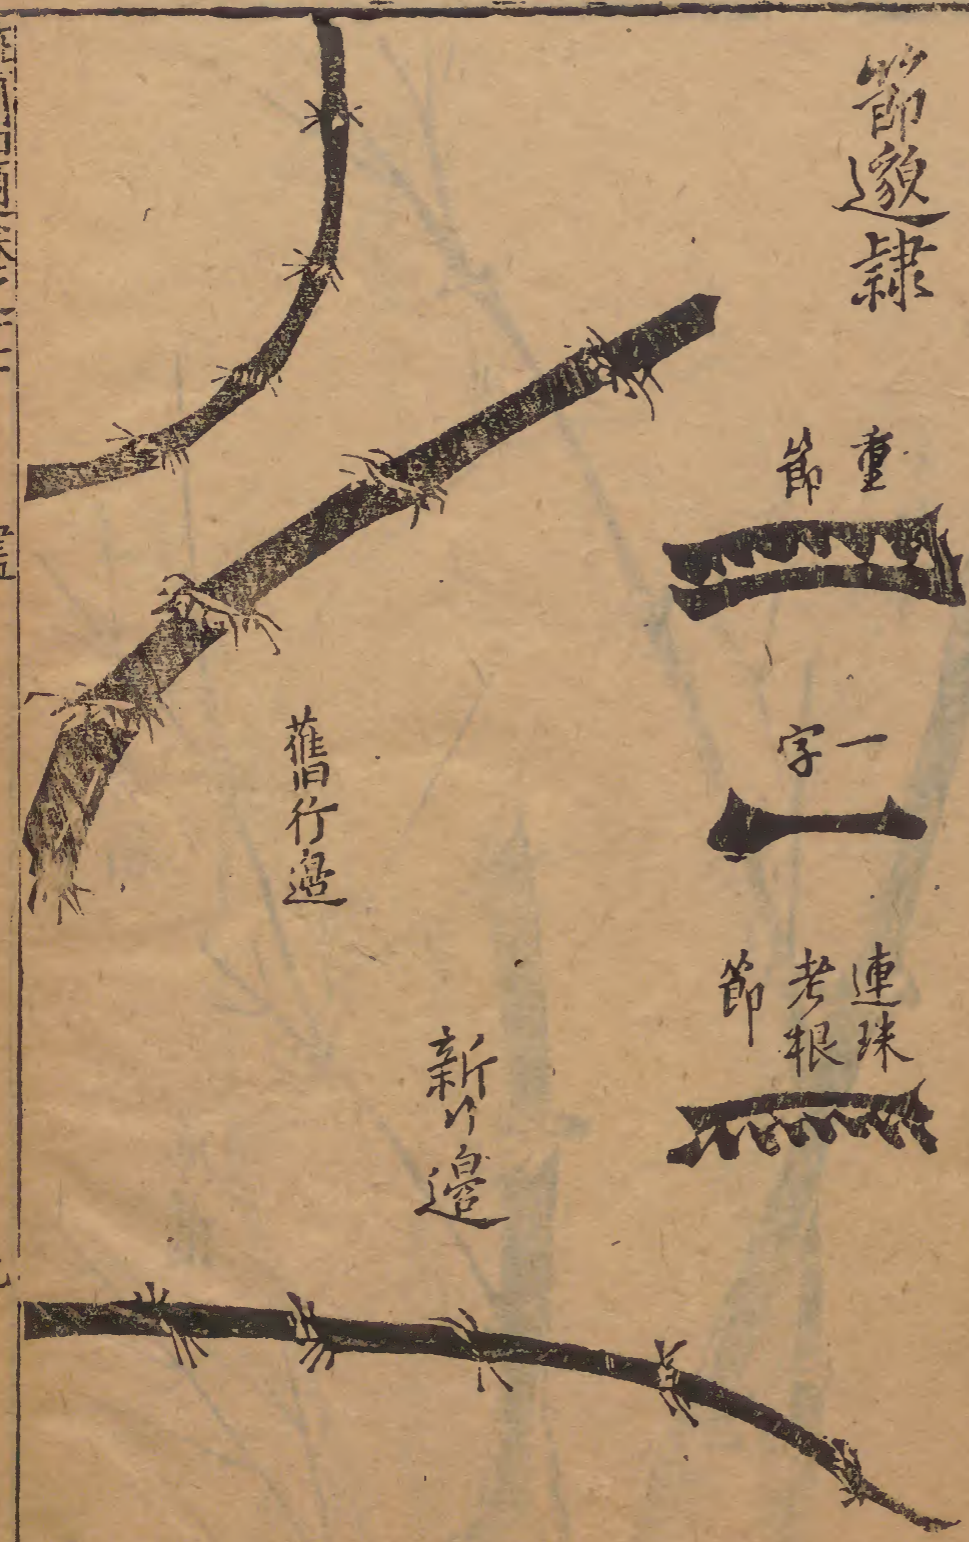 節邈隷
重
節
一
字
連珠
老根
節
舊行邉
新行邉